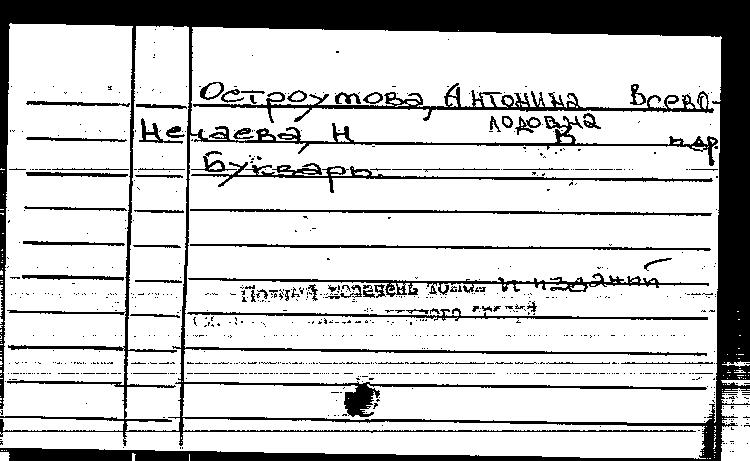 Остроумова, Антонина Всево-
лодовна
Нечаева, Н В и др.
Букварь.
Полный перечень томов и изданий
первого